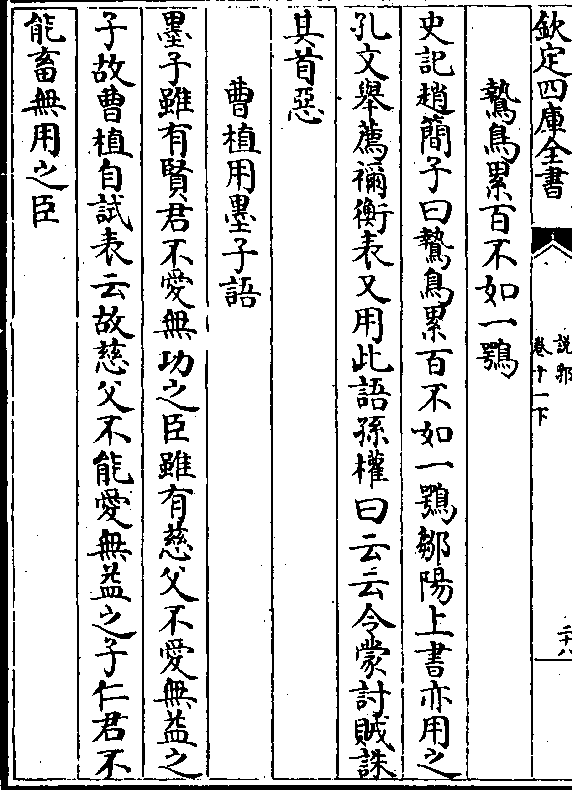 欽定四庫全書
說郛
卷十一下
鷙鳥累百不如一鶚
史記趙簡子曰鷙鳥累百不如一鶚鄒陽上書亦用之
孔文舉薦禰衡表又用此語孫權曰云云令蒙討賊誅
其首惡
曹植用墨子語
墨子雖有賢君不愛無功之臣雖有慈父不愛無益之
子故曹植自試表云故慈父不能愛無益之子仁君不
能畜無用之臣